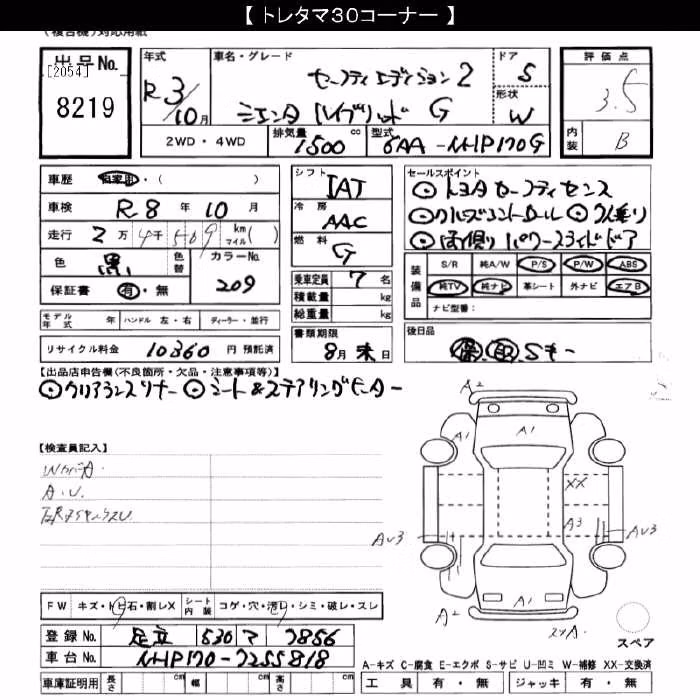 【 トレタマ30コーナー 】
出品No.
[2054]
8219
年式
R3/10月
車名・グレード
セーフティエディション2
シエンタ ハイブリッド G
ドア
5
形状
W
評価点
3.5
内装
B
2WD・4WD
排気量
1500 cc
型式
6AA-NHP170G
車歴 自家用・( )
車検 R8年 10月
走行 2万4千509 km マイル( )
色 黒 色替
カラーNo. 209
保証書 有・無
シフト
IAT
冷房
AAC
燃料
G
乗車定員 7名
積載量 kg
総重量 kg
セールスポイント
⊙トヨタセーフティセンス
⊙クルーズコントロール ⊙7人乗り
⊙両側パワースライドドア
装備品
S/R 純A/W P/S P/W ABS
純TV 純ナビ 革シート 外ナビ エアB
ナビ型番:
モデル年式 年 ハンドル 左・右 ディーラー・並行
リサイクル料金 10360 円 預託済
書類期限
8月末日
後日品
保 取 Sキー
【出品店申告欄(不良箇所・欠品・注意事項等)】
⊙クリアランスソナー ⊙シート&ステアリングヒーター
【検査員記入】
A.U.
A2
A1
A1
XX
A3
AU3
AU3
A1
A2
スペア
FW キズ・トビ石・割レX
シート内装 コゲ・穴・汚レ・シミ・破レ・スレ
登録No. 足立 530 マ 7856
車台No. NHP170-7255818
車庫証明用 長さ cm 幅 cm 高さ cm
A-キズ C-腐食 E-エクボ S-サビ U-凹ミ W-補修 XX-交換済
工具 有・無 ジャッキ 有・無